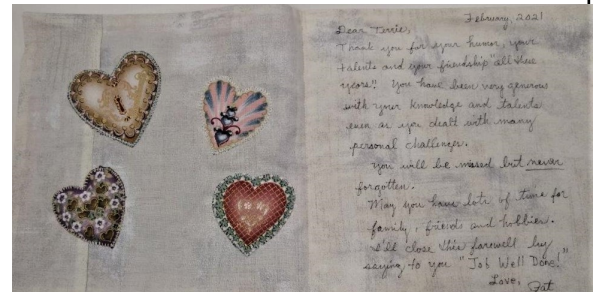 February, 2021
Dear Terrie,
Thank you for your humor, your
talents and your friendship "all these
years"! You have been very generous
with your knowledge and talents
even as you dealt with many
personal challenges.
You will be missed but never
forgotten.
May you have lots of time for
family, friends and hobbies.
I'll close this farewell by
saying to you "Job Well Done!"
Love, Pat